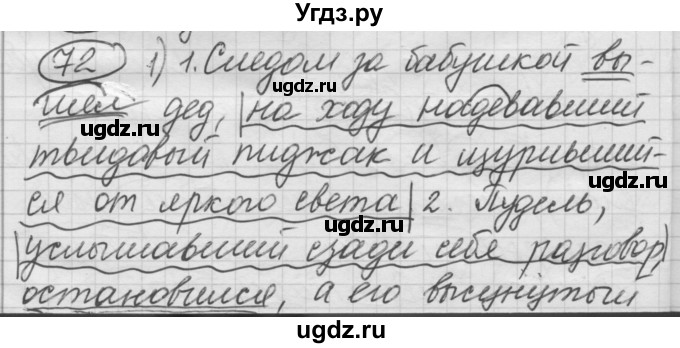 Угдз.ру
72 1) 1. Следом за бабушкой вы-
шел дед, на ходу надевавший
твидовый пиджак и щуривший-
ся от яркого света 2. Пудель,
услышавший сзади себя разговор,
остановился, а его высунутый
ugdz.ru ugdz.ru
ugdz.ru ugdz.ru
ugdz.ru ugdz.ru
ugdz.ru ugdz.ru